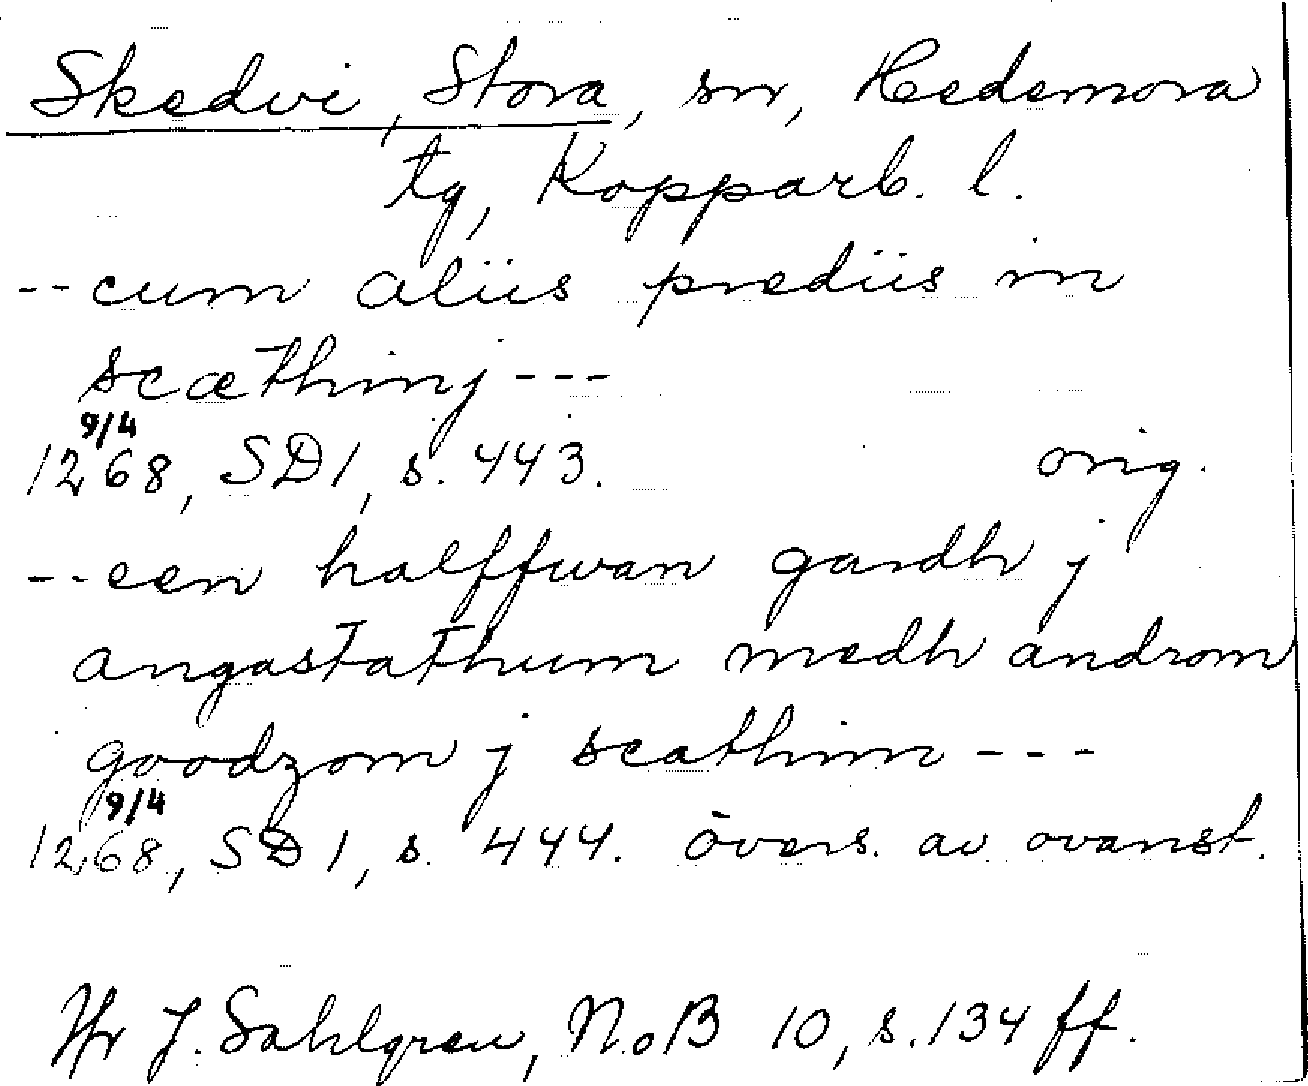 Skedvi, Stora, sn, Hedemora
tg, Kopparb. l.
-- cum aliis prediis in
scæthinj ---
9/4
1268, SD 1, s. 443. orig.
-- een halffwan gardh j
angastathum medh androm
goodzom j scathinn ---
9/4
1268, SD 1, s. 444. övers. av ovanst.
Jfr J. Sahlgren, NoB 10, s. 134 ff.